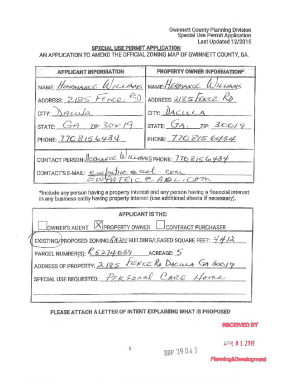 Gwinnett County Planning Division
Special Use Permit Application
Last Updated 12/2015
SPECIAL USE PERMIT APPLICATION
AN APPLICATION TO AMEND THE OFFICIAL ZONING MAP OF GWINNETT COUNTY, GA.
APPLICANT INFORMATION
NAME: Hermance Williams
ADDRESS: 2185 Fence RD
CITY: Dacula
STATE: GA ZIP: 30019
PHONE: 7708156434
PROPERTY OWNER INFORMATION*
NAME: Hermance Williams
ADDRESS: 2185 Fence RD
CITY: Dacula
STATE: GA. ZIP: 30019
PHONE: 7708156434
CONTACT PERSON: Hermance Williams PHONE: 7708156434
CONTACT'S E-MAIL:
*Include any person having a property interest and any person having a financial interest
in any business entity having property interest (use additional sheets if necessary).
APPLICANT IS THE:
OWNER'S AGENT X PROPERTY OWNER CONTRACT PURCHASER
EXISTING/PROPOSED ZONING: BUILDING/LEASED SQUARE FEET: 4412
PARCEL NUMBER(S): R5224059 ACREAGE: 5
ADDRESS OF PROPERTY: 2185 Fence RD Dacula GA 30019
SPECIAL USE REQUESTED: Personal Care Home
PLEASE ATTACH A LETTER OF INTENT EXPLAINING WHAT IS PROPOSED
RECEIVED BY
APR 01 2019
Planning&Development
SUP '19 043